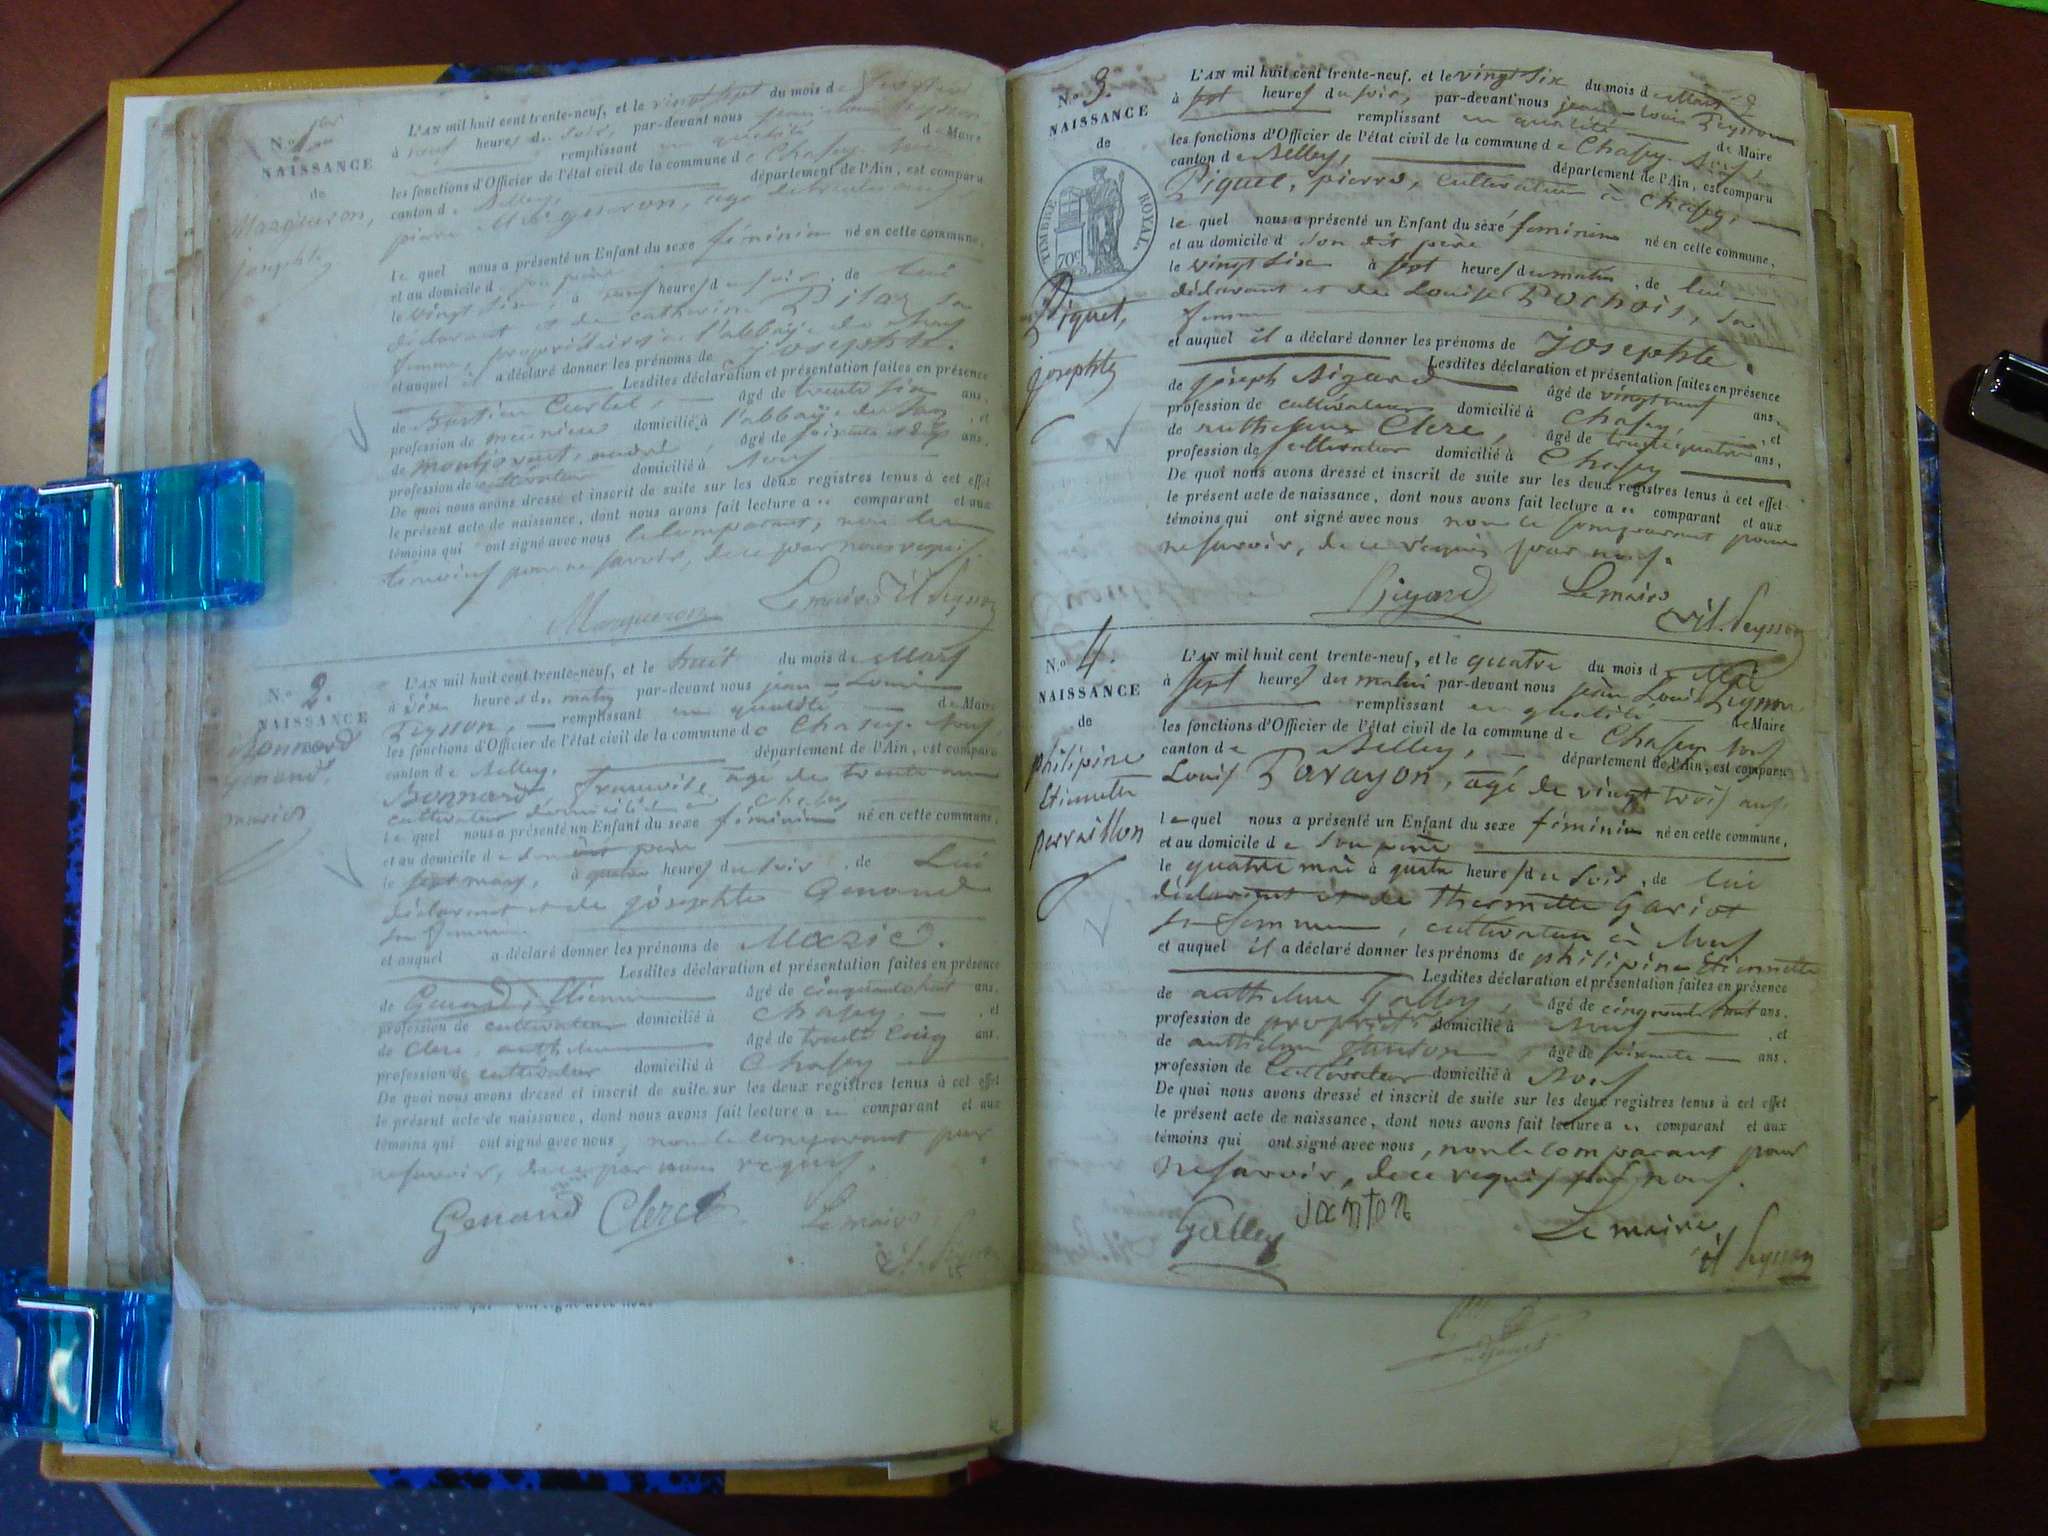 N.o 1er
NAISSANCE
de
Margueron,
josephte
L'AN mil huit cent trente-neuf, et le vingt sept du mois de
à neuf heures du soir, par-devant nous jean-Louis Peysson
remplissant en qualité de Maire
les fonctions d'Officier de l'état civil de la commune de Chasey
canton de Belley, département de l'Ain, est comparu
pierre Margueron, agé de trente
le quel nous a présenté un Enfant du sexe féminin né en cette commune,
et au domicile de son père
le vingt six à heures du soir, de lui
déclarant et de catherine Pilaz sa
femme, propriétaire à l'abbaye de
et auquel il a déclaré donner les prénoms de josephte.
Lesdites déclaration et présentation faites en présence
de Curtet, âgé de trente six ans,
profession de meunier domicilié à l'abbaye et
de montjovent, andré âgé de soixante et ans,
profession de cultivateur domicilié à
De quoi nous avons dressé et inscrit de suite sur les deux registres tenus à cet effet
le présent acte de naissance, dont nous avons fait lecture a comparant et aux
témoins qui ont signé avec nous le comparant, non les
témoins pour ne savoir, de ce par nous requis.
Margueron Le maire Peysson
N.o 2.
NAISSANCE
de
Bonnard
Genand,
marie
L'AN mil huit cent trente-neuf, et le huit du mois de Mars
à six heures du matin par-devant nous jean-Louis
Peysson, remplissant en qualité de Maire
les fonctions d'Officier de l'état civil de la commune de Chasey
canton de Belley, département de l'Ain, est comparu
Bonnard françois, agé de trente ans
cultivateur domicilié à chasey
le quel nous a présenté un Enfant du sexe féminin né en cette commune,
et au domicile de son père
le sept mars, à quatre heures du soir, de Lui
déclarant et de josephte Genand
sa femme
et auquel a déclaré donner les prénoms de Marie.
Lesdites déclaration et présentation faites en présence
de Genand, Etienne âgé de cinquante huit ans,
profession de cultivateur domicilié à Chasey, et
de Clerc, anthelme âgé de trente cinq ans,
profession de cultivateur domicilié à Chasey
De quoi nous avons dressé et inscrit de suite sur les deux registres tenus à cet effet
le présent acte de naissance, dont nous avons fait lecture a comparant et aux
témoins qui ont signé avec nous, non le comparant pour
ne savoir, de ce par nous requis.
Genand Clerc Le maire
Peysson
N.o 3.
NAISSANCE
de
TIMBRE ROYAL.
70c
Piquet,
josephte
L'AN mil huit cent trente-neuf, et le vingt six du mois de Mars
à sept heures du soir, par-devant nous jean-Louis Peysson
remplissant en qualité de Maire
les fonctions d'Officier de l'état civil de la commune de Chasey
canton de Belley, département de l'Ain, est comparu
Piquet, pierre, cultivateur à chasey,
le quel nous a présenté un Enfant du sexe féminin né en cette commune,
et au domicile d son dit père
le vingt six à sept heures du matin, de lui
déclarant et de Louise Pochois, sa
femme
et auquel il a déclaré donner les prénoms de Josephte.
Lesdites déclaration et présentation faites en présence
de joseph Bigard âgé de vingt neuf ans,
profession de cultivateur domicilié à Chasey, et
de Clerc, âgé de trente quatre ans,
profession de cultivateur domicilié à Chasey
De quoi nous avons dressé et inscrit de suite sur les deux registres tenus à cet effet
le présent acte de naissance, dont nous avons fait lecture a comparant et aux
témoins qui ont signé avec nous non le comparant pour
ne savoir, de ce requis par nous.
Bigard Le maire
Peysson
N.o 4.
NAISSANCE
de
philipine
Etiennette
parraillon
L'AN mil huit cent trente-neuf, et le quatre du mois de Mai
à sept heures du matin par-devant nous jean Louis Peysson
remplissant en qualité de Maire
les fonctions d'Officier de l'état civil de la commune de Chasey
canton de Belley, département de l'Ain, est comparu
Louis Parayon, agé de vingt trois ans,
le quel nous a présenté un Enfant du sexe féminin né en cette commune,
et au domicile de son père
le quatre mai à quatre heures du soir, de lui
déclarant et de thermette Gariot
sa femme, cultivateur à
et auquel il a déclaré donner les prénoms de philipine Etiennette
Lesdites déclaration et présentation faites en présence
de anthelme Galley, âgé de cinquante huit ans,
profession de domicilié à et
de anthelme Janton, âgé de soixante ans,
profession de Cultivateur domicilié à
De quoi nous avons dressé et inscrit de suite sur les deux registres tenus à cet effet
le présent acte de naissance, dont nous avons fait lecture a comparant et aux
témoins qui ont signé avec nous, non le comparant pour
ne savoir, de ce requis par nous.
Galley janton Le maire
Peysson